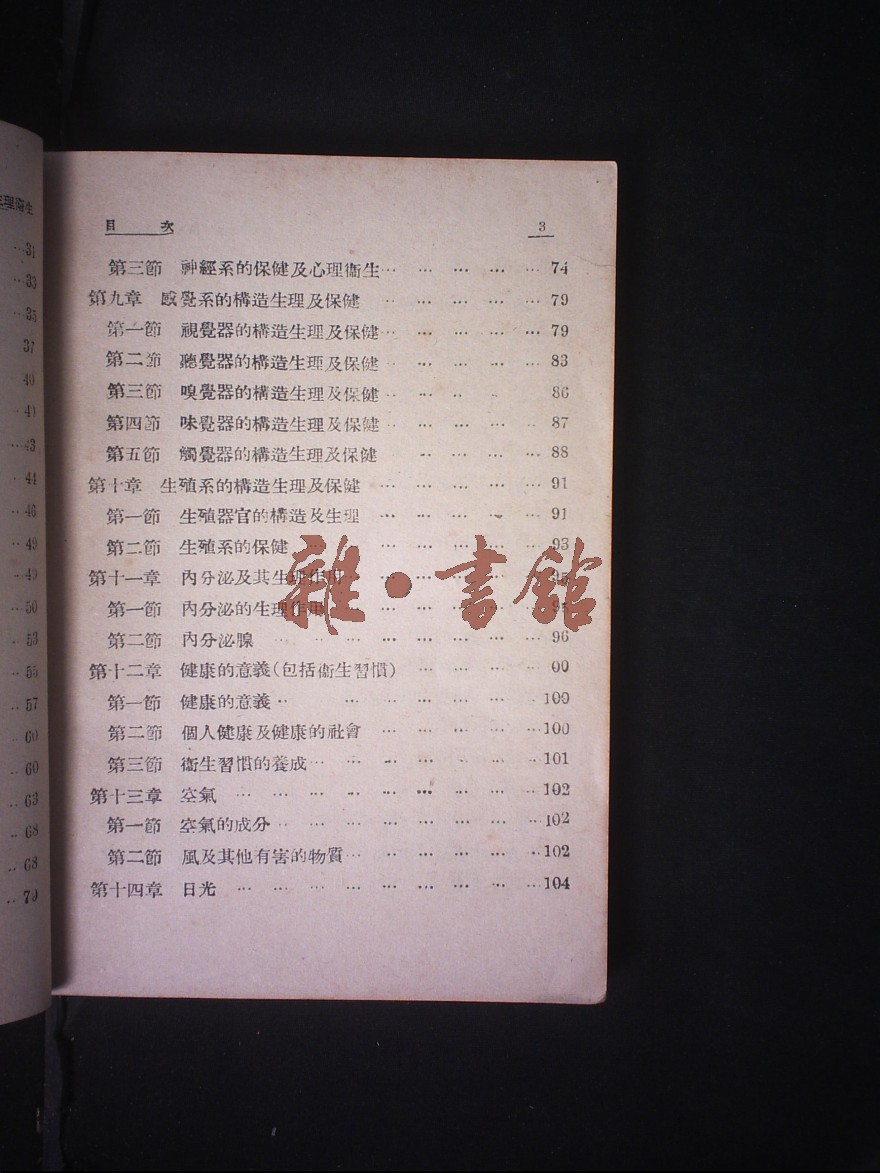 生理衞生
31
33
35
37
40
40
43
44
46
49
49
50
53
55
57
60
60
63
68
68
70
目 次 3
第三節 神經系的保健及心理衞生… … … … … 74
第九章 感覺系的構造生理及保健 … … … … … 79
第一節 視覺器的構造生理及保健… … … … … 79
第二節 聽覺器的構造生理及保健 … … … … … 83
第三節 嗅覺器的構造生理及保健 … … … 86
第四節 味覺器的構造生理及保健… … … … … 87
第五節 觸覺器的構造生理及保健 … … … … 88
第十章 生殖系的構造生理及保健 … … … … … 91
第一節 生殖器官的構造及生理 … … … … … 91
第二節 生殖系的保健 … … … … … … 93
第十一章 內分泌及其生理作用 … … … … …
第一節 內分泌的生理作用 … … … … …
第二節 內分泌腺 … … … … … … … 96
第十二章 健康的意義(包括衞生習慣) … … … …
第一節 健康的意義… … … … … … … 100
第二節 個人健康及健康的社會 … … … … … 100
第三節 衞生習慣的養成… … … … … … … 101
第十三章 空氣 … … … … … … … … … 102
第一節 空氣的成分… … … … … … … … 102
第二節 風及其他有害的物質… … … … … … 102
第十四章 日光 … … … … … … … … … 104
雜·書館